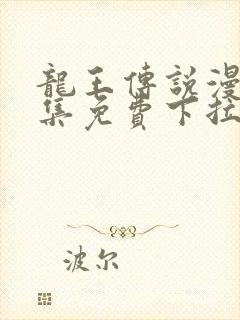 龍王傳說漫
集免費下拉
波尔